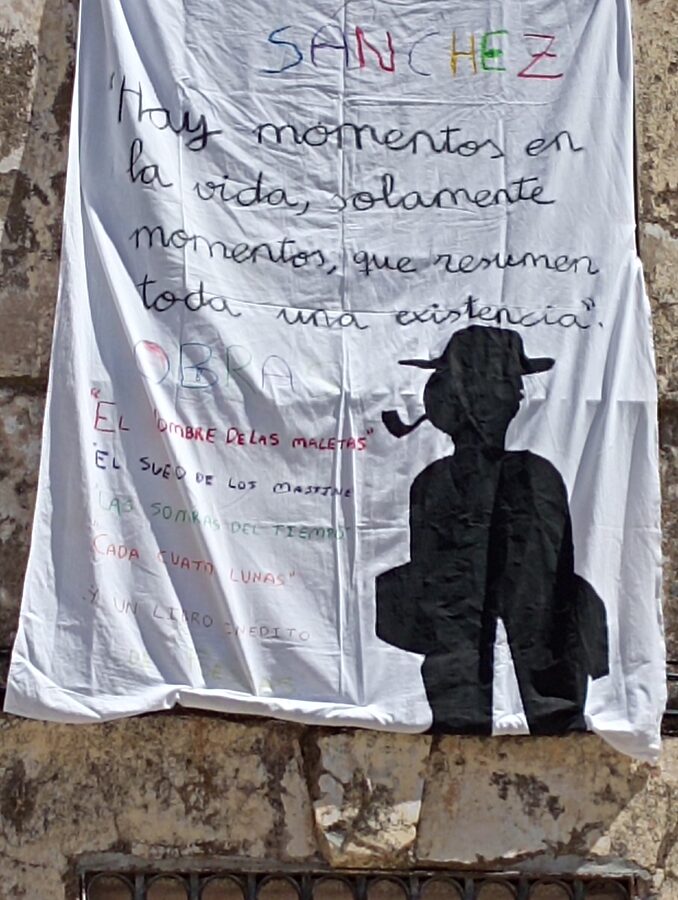 SANCHEZ
"Hay momentos en
la vida, solamente
momentos, que resumen
toda una existencia".
OBRA
"EL OMBRE DE LAS MALETAS"
"EL SUEO DE LOS MASTINE
"LAS SOMRAS DEL TIEMPO"
"CADA CUATO LUNAS"
Y UN LIBRO INEDITO